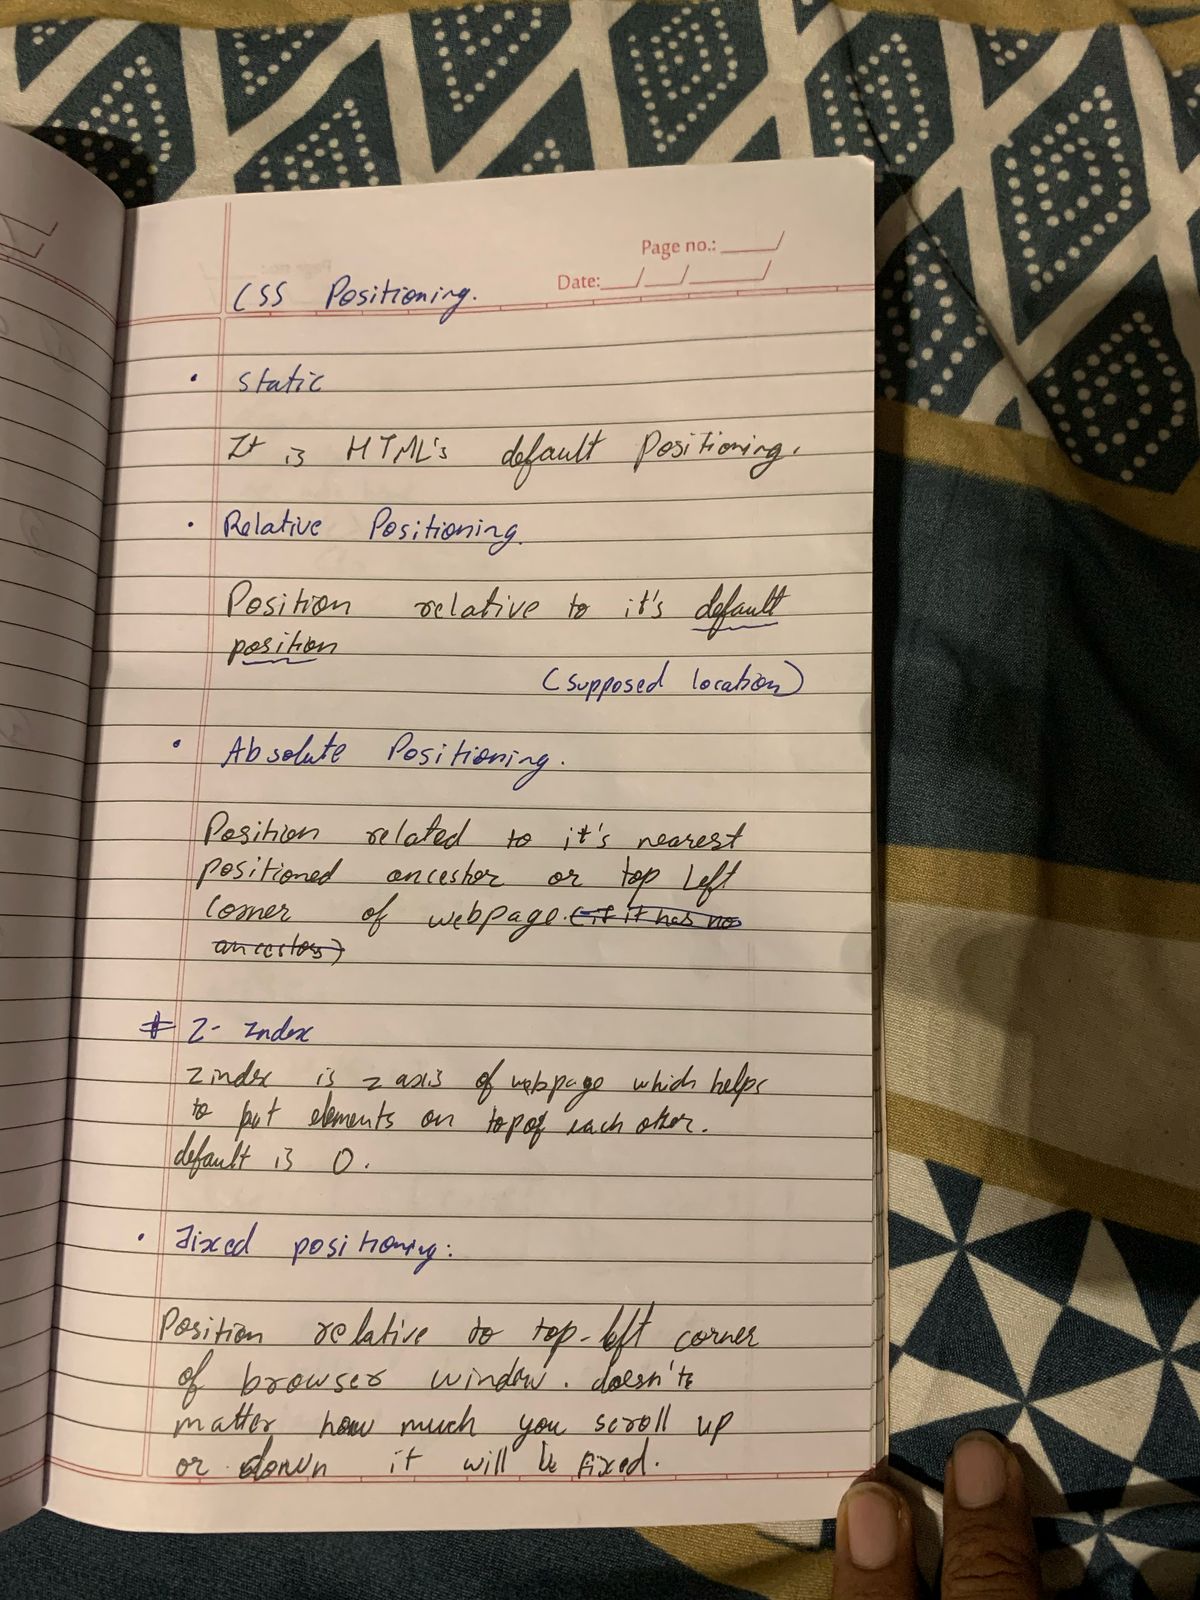 Page no.:
Date:
CSS Positioning.
• Static
It is HTML's default Positioning.
• Relative Positioning.
Position relative to it's default
position
(supposed location)
• Absolute Positioning.
Position related to it's nearest
positioned ancestor or top left
corner of webpage. (if it has no
ancestors)
# Z- Index
Z index is z axis of webpage which helps
to put elements on top of each other.
default is 0.
• Fixed positioning:
Position relative to top-left corner
of browser window. doesn't
matter how much you scroll up
or down it will be fixed.